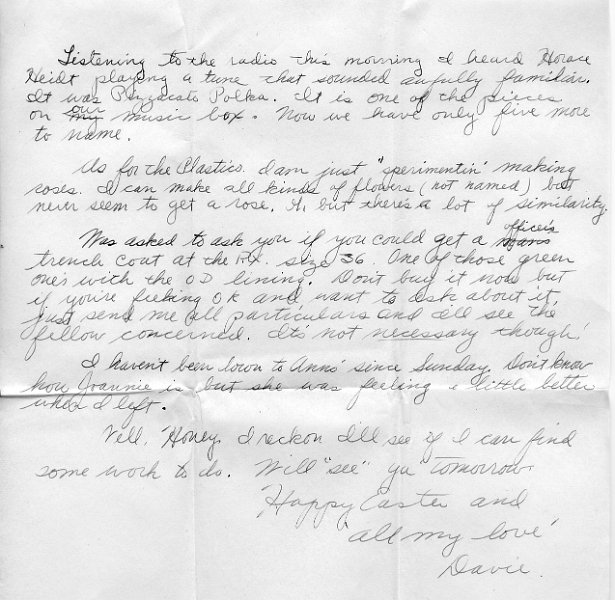 Listening to the radio this morning I heard Horace
Heidt playing a tune that sounded awfully familiar.
It was Pizzacato Polka. It is one of the pieces
on my our music box. Now we have only five more
to name.
As for the Plastics. I am just "sperimentin" making
roses. I can make all kinds of flowers (not named) but
never seem to get a rose. but there's a lot of similarity.
Was asked to ask you if you could get a officer's
trench coat at the P.X. size 36. One of those green
one's with the OD lining. Don't buy it now but
if you're feeling OK and want to ask about it,
just send me all particulars and I'll see the
fellow concerned. It's not necessary though!
I haven't been down to Anns' since Sunday. Don't know
how Joannie is but she was feeling a little better
when I left.
Well, 'Honey, I reckon I'll see if I can find
some work to do. Will "see" ya' tomorrow.
'Happy Easter and
'all my love'
Davie.